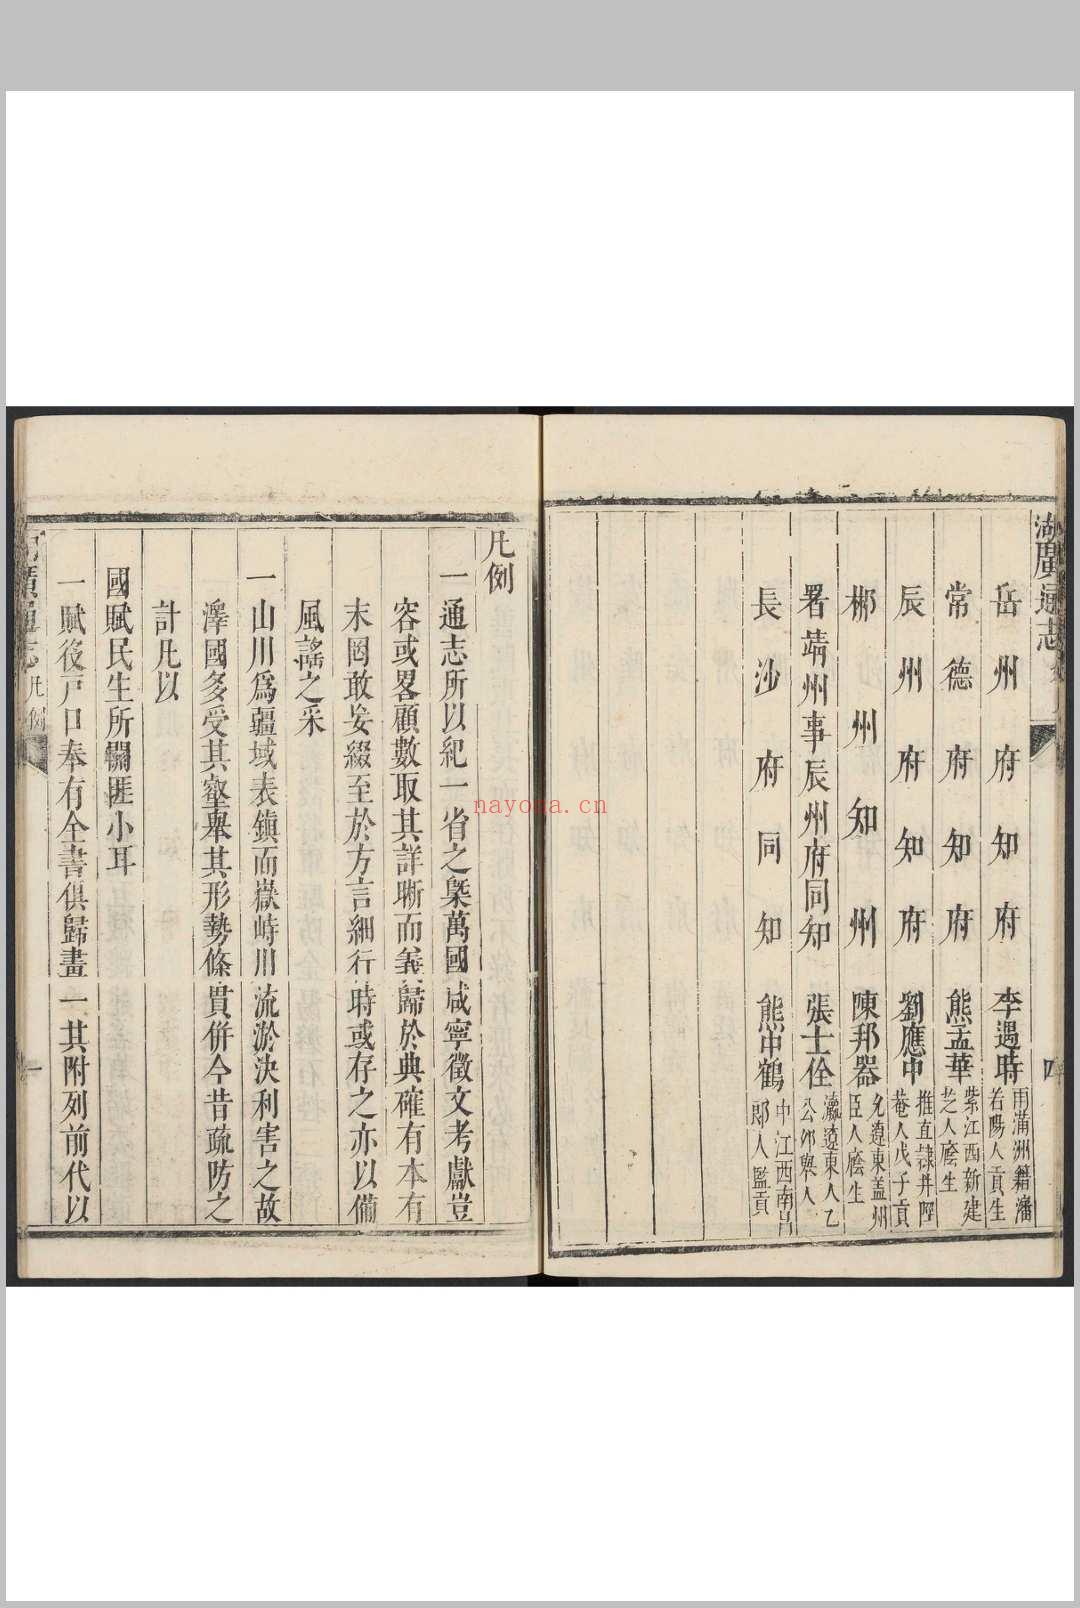 湖廣通志
岳州府知府 李遇時 雨蒲洲籍瀋
若陽人貢生
常德府知府 熊孟華 紫江西新建
芝人廕生
辰州府知府 劉應中 推直隷井陘
菴人戊子貢
郴州知州 陳邦器 允遼東盖州
臣人廕生
署靖州事辰州府同知 張士佺 瀛遼東人乙
公卯舉人
長沙府同知 熊中鶴 中江西南昌
郞人監貢
凡例
一通志所以紀一省之槩萬國咸寧徵文考獻豈
容或畧顧數取其詳晰而義歸於典確有本有
末罔敢妄綴至於方言細行時或存之亦以備
風謠之采
一山川爲疆域表鎭而嶽峙川流淤決利害之故
澤國多受其壑舉其形勢條貫併今昔疏防之
計凡以
國賦民生所關匪小耳
一賦役戸口奉有全書俱歸畫一其附列前代以
廣通志 凡例 一
nayona.cn